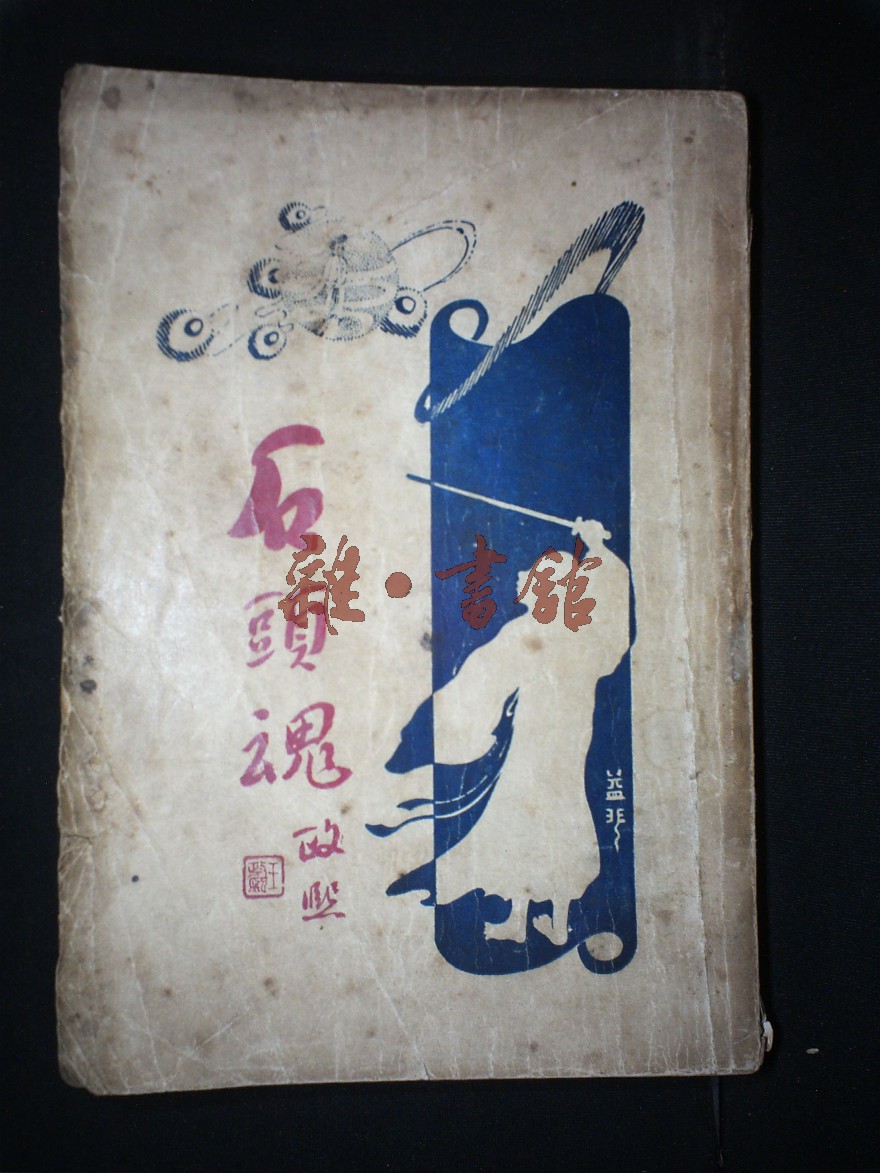 石頭魂
政熙
益非
雜·書館